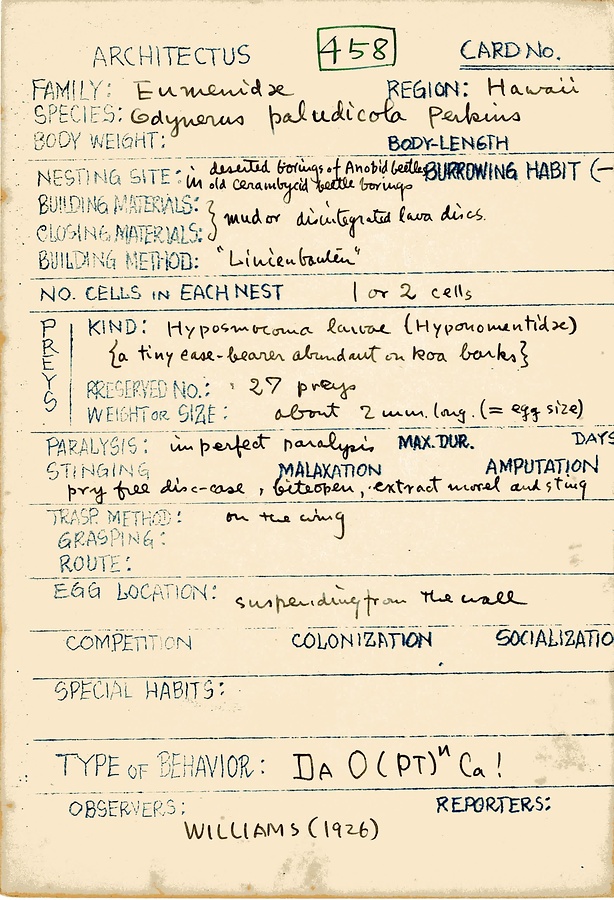 ARCHITECTUS 458 CARD NO.
FAMILY: Eumenidae REGION: Hawaii
SPECIES: Odynerus paludicola Perkins
BODY WEIGHT: BODY-LENGTH
NESTING SITE: in deserted borings of Anobid beetle BURROWING HABIT (-
in old cerambycid beetle borings
BUILDING MATERIALS: } mud or disintegrated lava discs.
CLOSING MATERIALS:
BUILDING METHOD: "Linienbauten"
NO. CELLS IN EACH NEST 1 or 2 cells
PREYS KIND: Hyposmocoma larvae (Hyponomentidae)
{a tiny case-bearer abundant on koa barks}
PRESERVED NO.: 27 preys
WEIGHT OR SIZE: about 2 mm. long. (= egg size)
PARALYSIS: imperfect paralysis MAX. DUR. DAYS
STINGING MALAXATION AMPUTATION
pry free disc-case, bite open, extract morel and sting
TRASP. METHOD: on the wing
GRASPING:
ROUTE:
EGG LOCATION: suspending from the wall
COMPETITION COLONIZATION SOCIALIZATIO
SPECIAL HABITS:
TYPE OF BEHAVIOR: DA O(PT)ⁿ Ca!
OBSERVERS: REPORTERS:
WILLIAMS (1926)